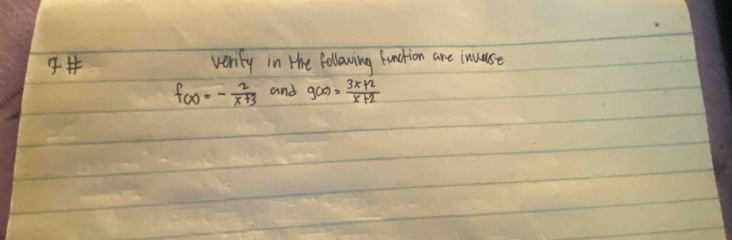 7# verify in the following function are inverse
f(x) = - 2/x+3 and g(x) = 3x+2/x+2